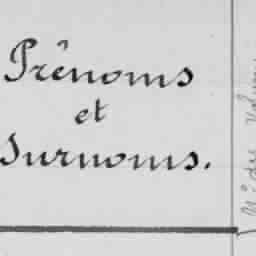 Prênoms
et
Surnoms.
N° du Volume